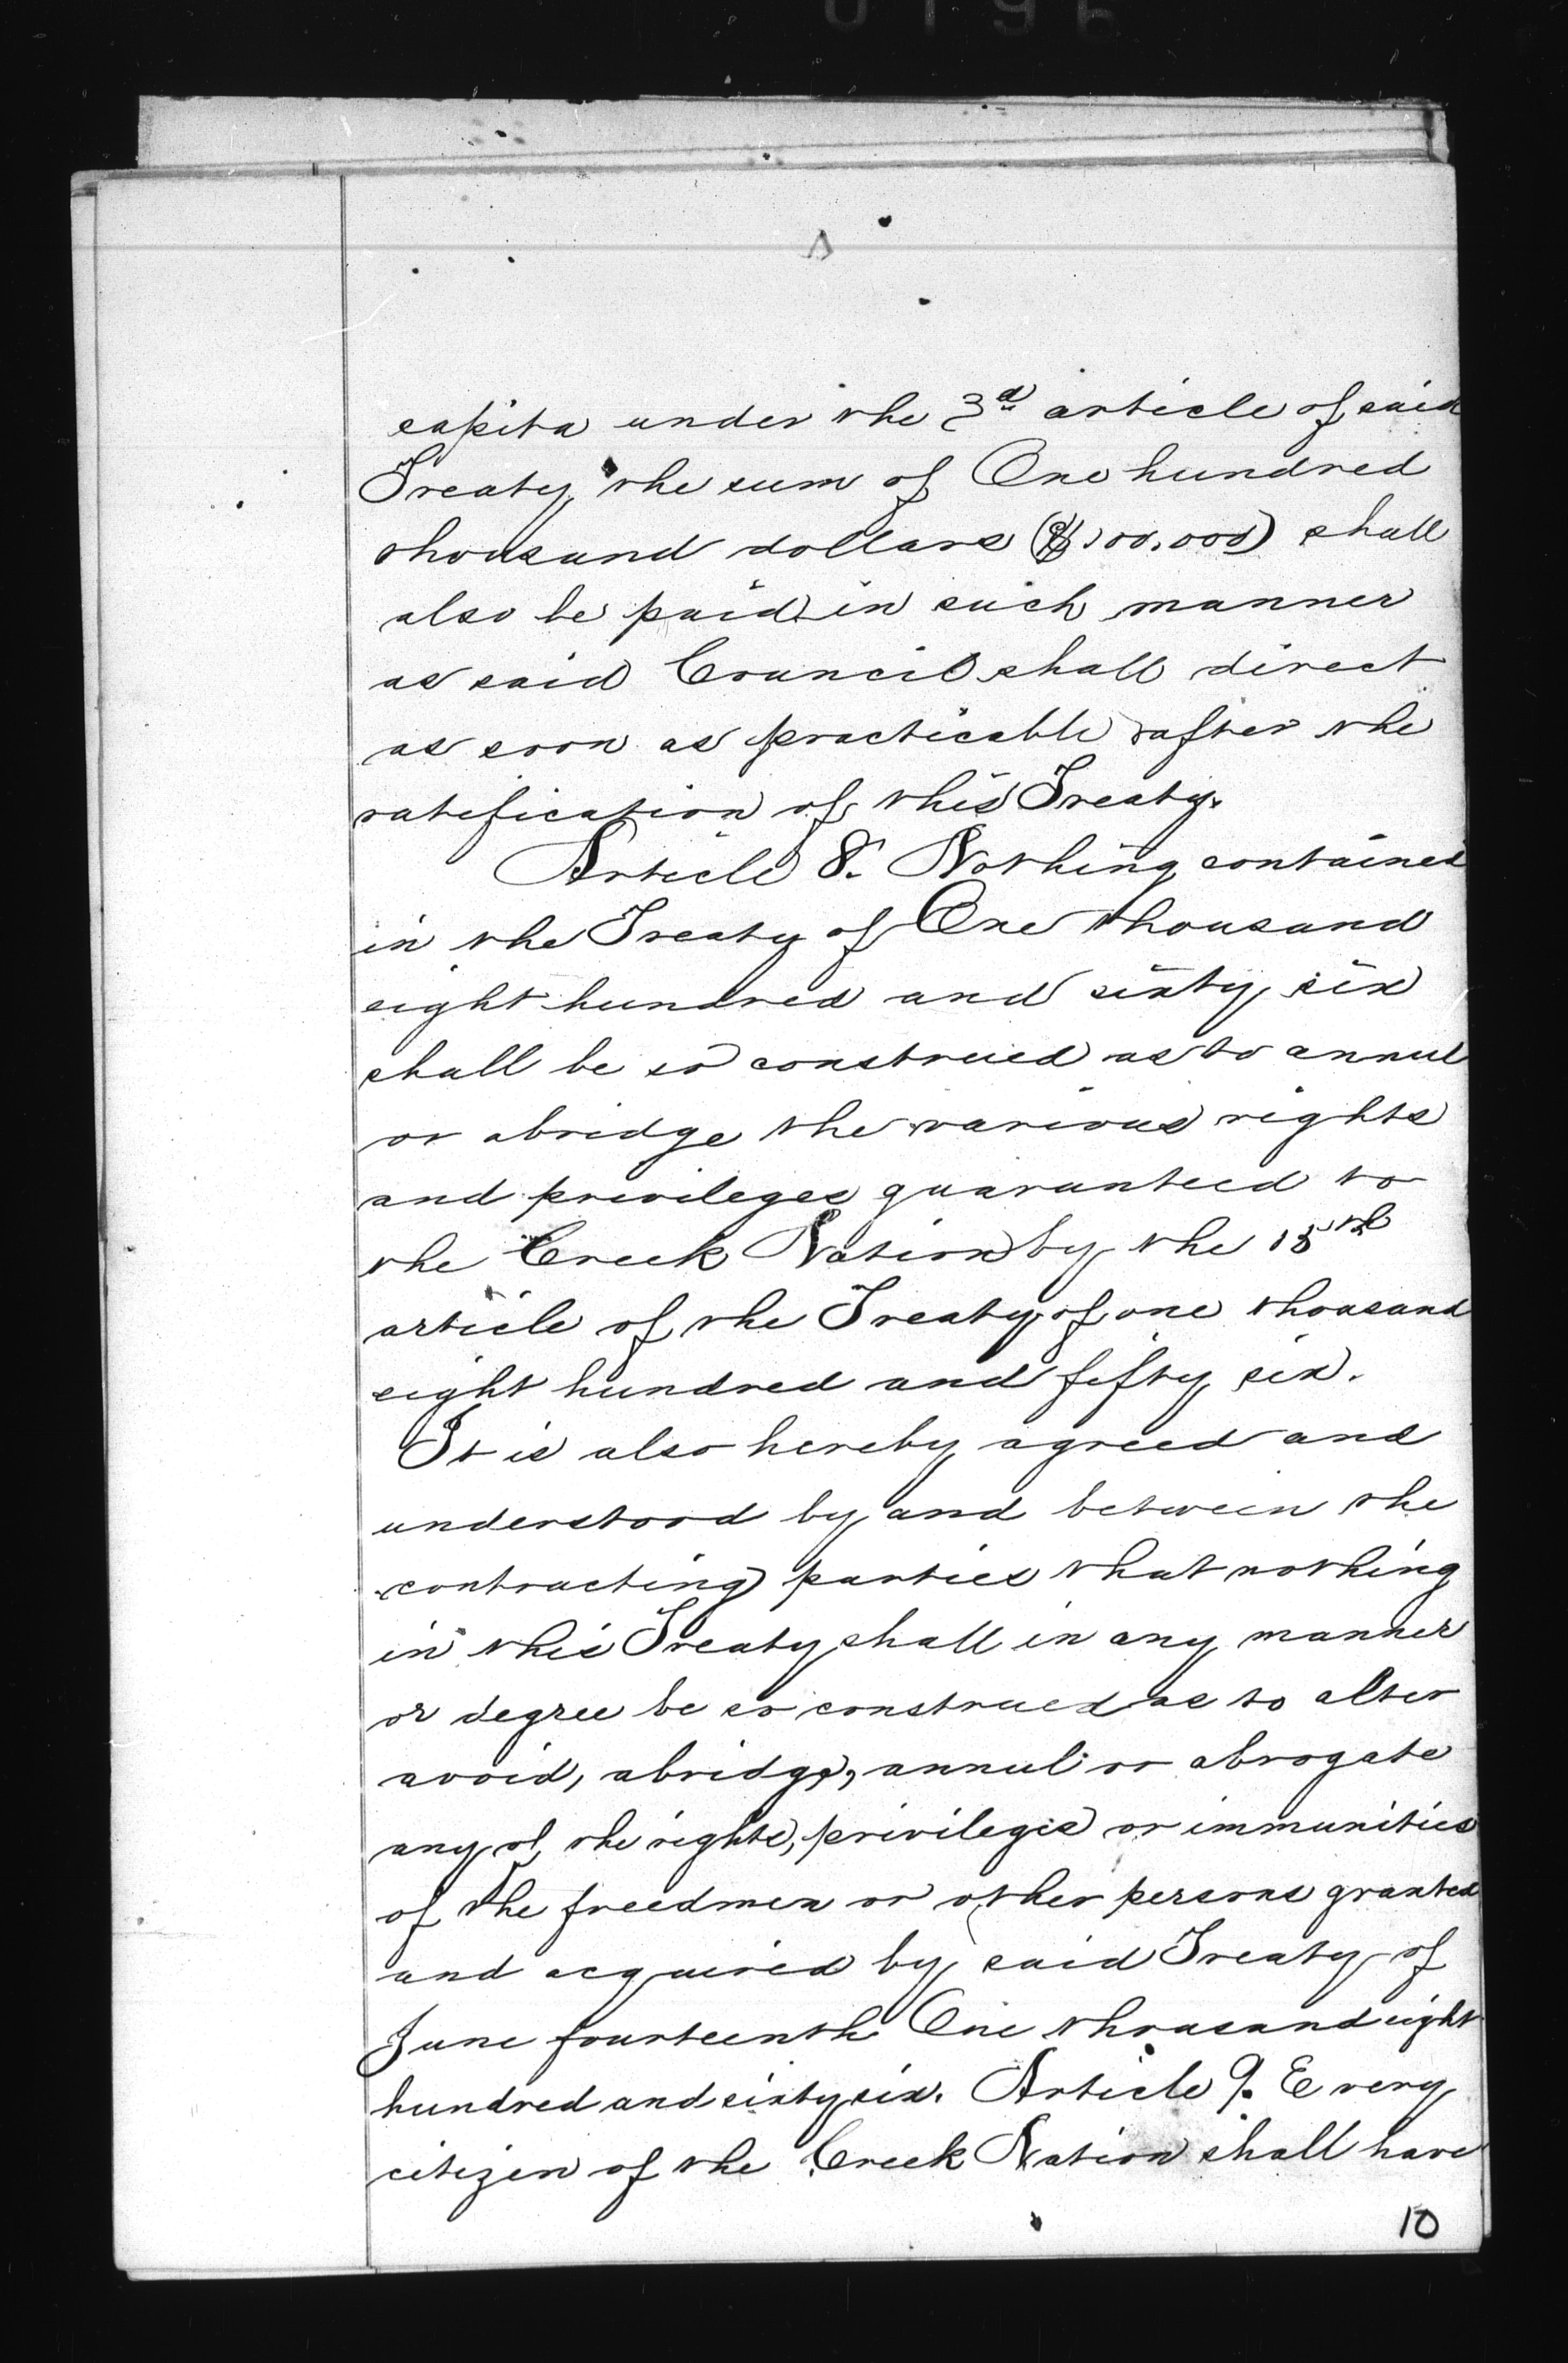 capita under the 3d article of said
Treaty, the sum of One hundred
thousand dollars ($100,000) shall
also be paid in such manner
as said Council shall direct
as soon as practicable after the
ratification of this Treaty.
Article 8. Nothing contained
in the Treaty of One thousand
eight hundred and sixty six
shall be so construed as to annul
or abridge the various rights
and privileges guaranteed to
the Creek Nation by the 15th
article of the Treaty of one thousand
eight hundred and fifty six.
It is also hereby agreed and
understood by and between the
contracting parties that nothing
in this Treaty shall in any manner
or degree be so construed as to alter
avoid, abridge, annul or abrogate
any of the rights, privileges or immunities
of the freedmen or other persons granted
and acquired by said Treaty of
June fourteenth One thousand eight
hundred and sixty six. Article 9. Every
citizen of the Creek Nation shall have
10